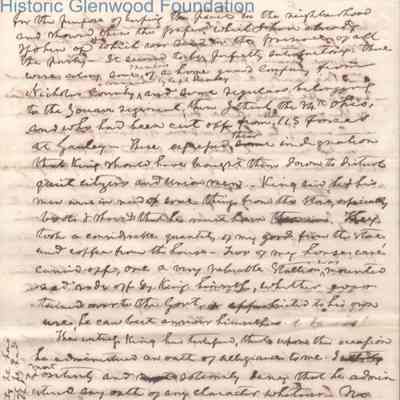 Historic Glenwood Foundation
for the purpose of the in the neighborhood
and showed them the papers which I have already
spoken of which was read in the presence of all
the party. It seemed to be perfectly satisfactory. There
were along, some of a home company from
Nicholas County, and some regulars belonging
to the Zouave regiment, then I think the 44th Ohio,
and who had been cut off from U.S. forces
at Gauley. These expressed some indignation
that King should have brought them down to disturb
quiet citizens and Union men. King said he & his
men were in need of some things from the store, especially
boots & shoes & that he must have They
took a considerable quantity of my goods from the store
and coffee from the house. Two of my horses were
carried off, one a very valuable Stallion, was mounted
and rode off by King himself, whether
over to the Govt. or to his own
use, he can best answer himself.
King has testified, that upon the occasion
he administered an oath of allegiance to me. I
most positively and solemnly deny that he admin
istered any oath of any character whatever. No